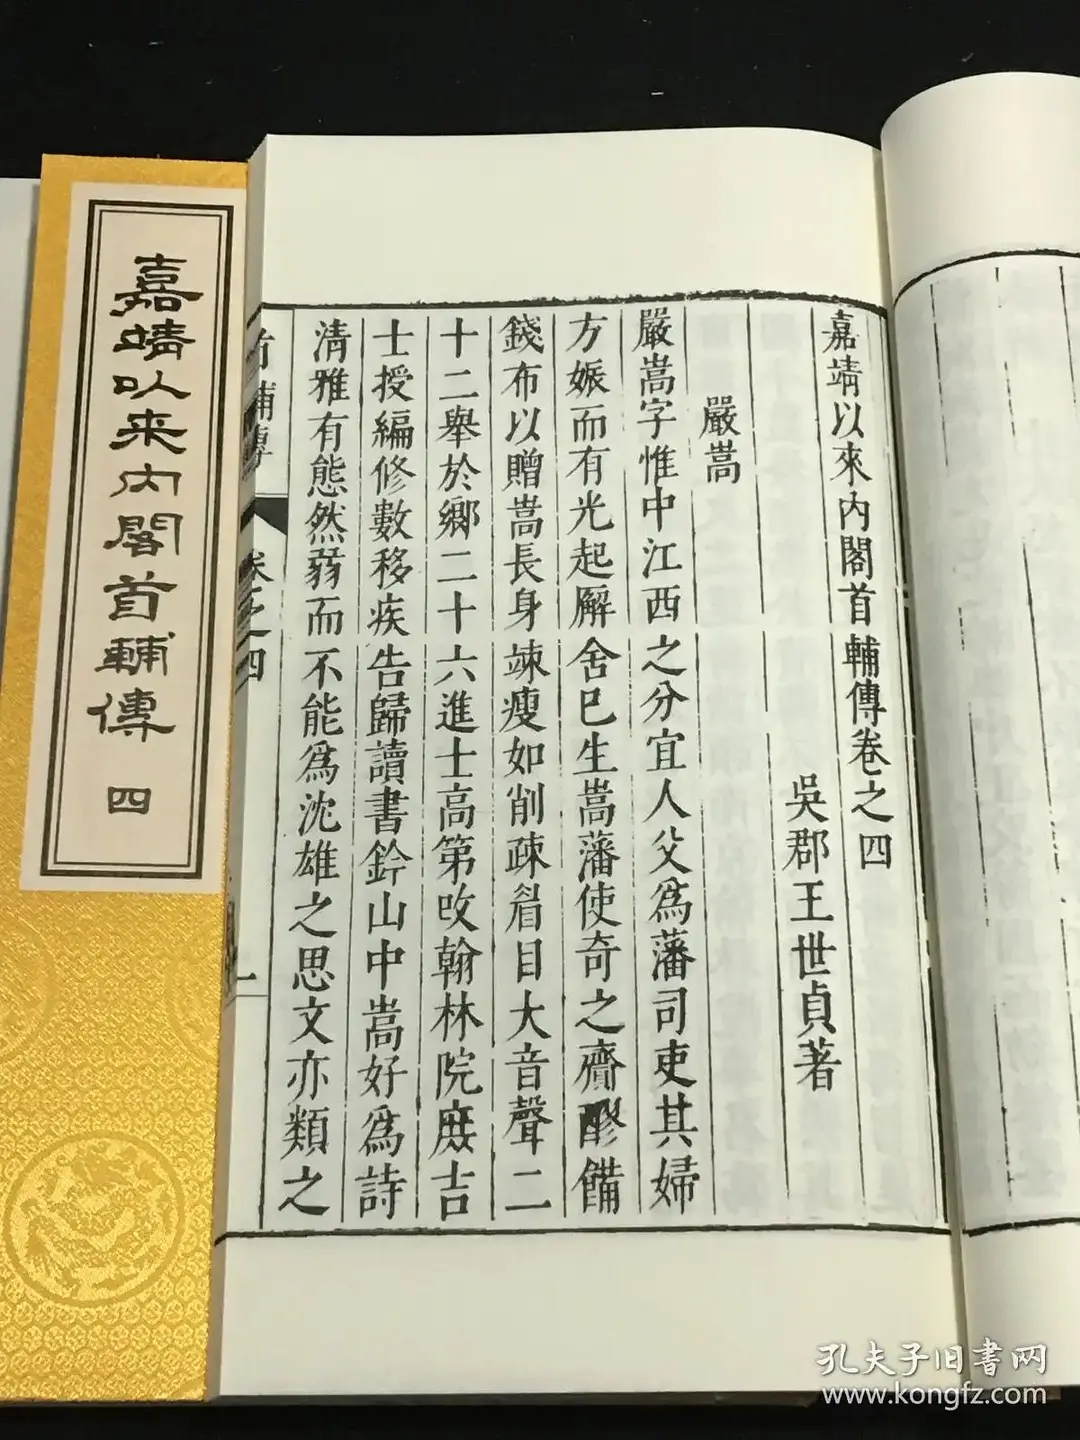 嘉靖以來內閣首輔傳卷之四
吳郡王世貞著
嚴嵩
嚴嵩字惟中江西之分宜人父爲藩司吏其婦
方娠而有光起廨舍巳生嵩藩使奇之齎醪備
錢布以贈嵩長身竦瘦如削疎眉目大音聲二
十二舉於鄉二十六進士高第攺翰林院庶吉
士授編修數移疾告歸讀書鈐山中嵩好爲詩
清雅有態然弱而不能爲沈雄之思文亦類之
首輔傳
卷之四
一
嘉靖以来内閣首輔傳 四
孔夫子旧書网
www.kongfz.com